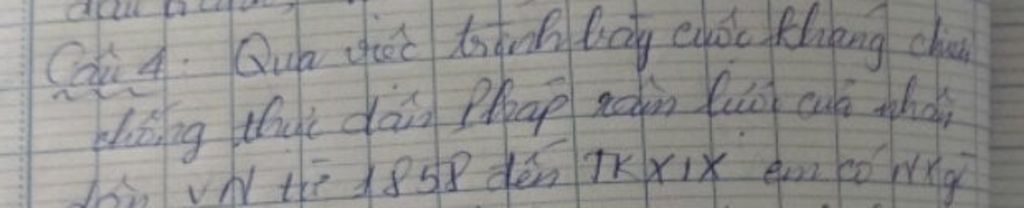 Câu 4: Qua việc trình bày cuộc kháng chiến
chống thực dân Pháp xâm lược của nhân
dân VN từ 1858 đến TK XIX em có NX gì